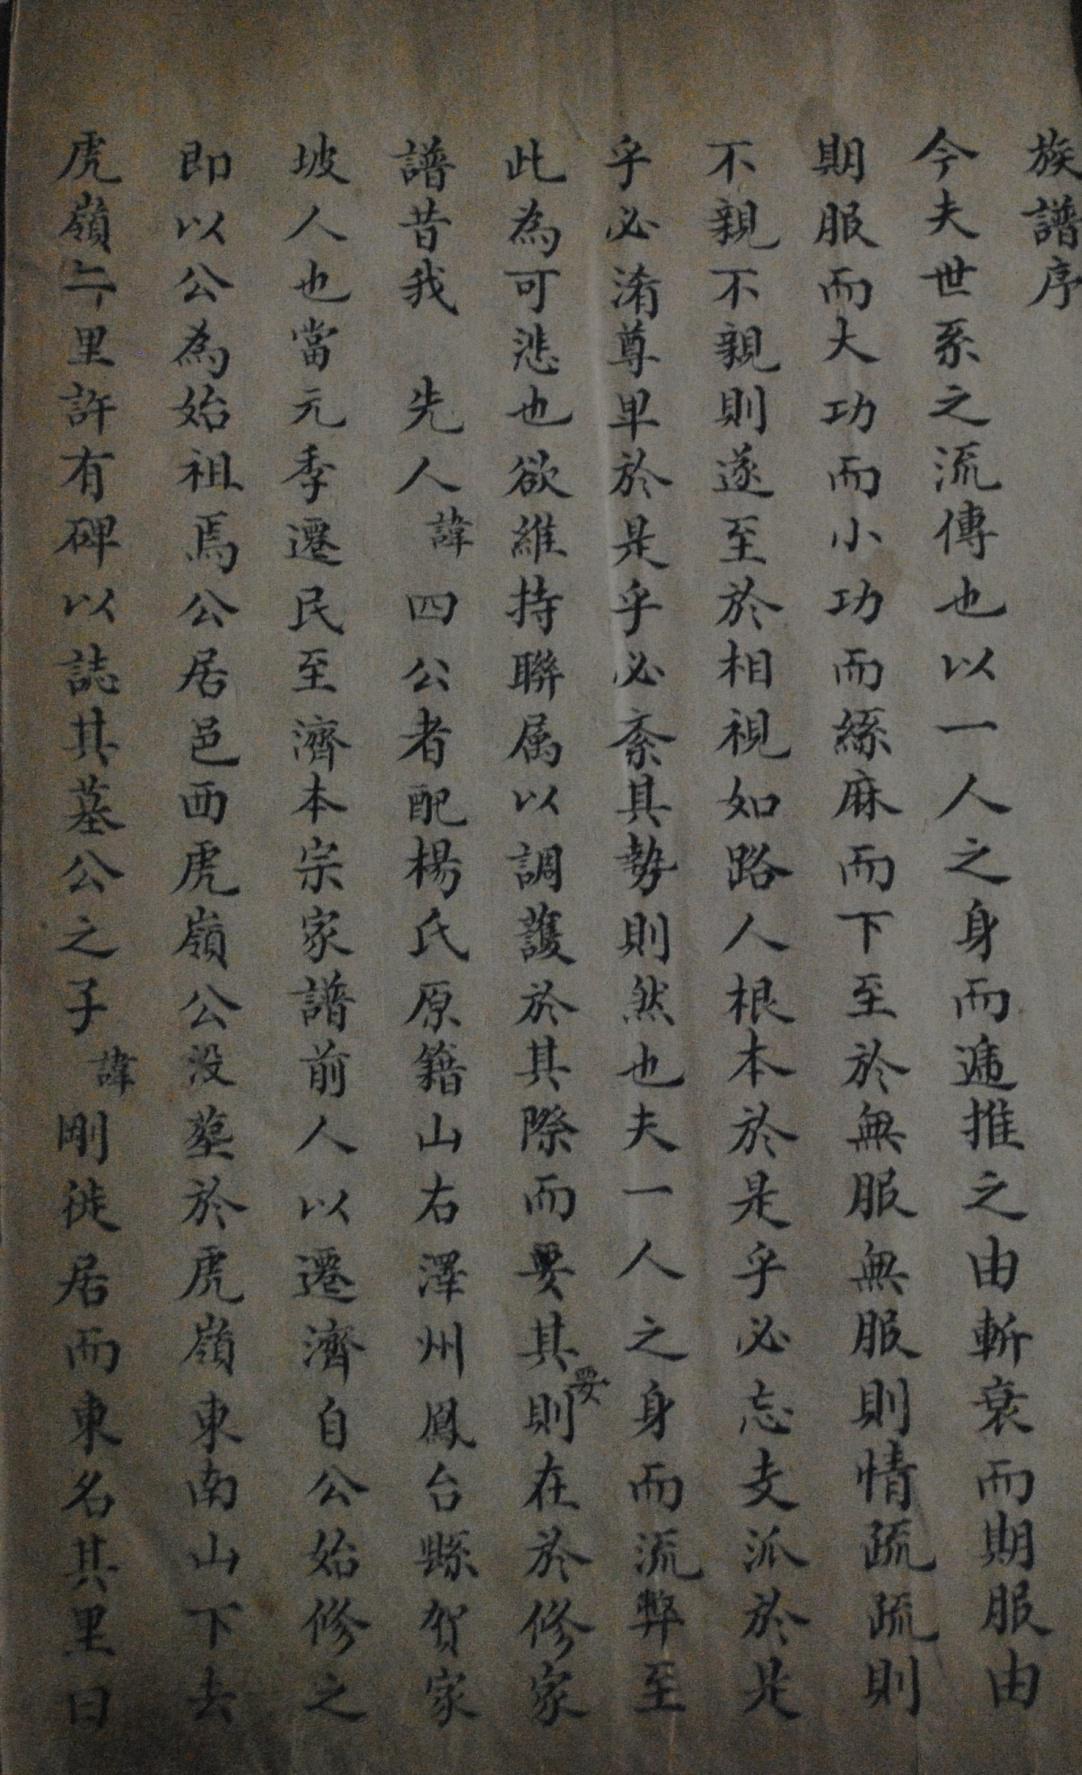 族譜序
今夫世系之流傳也以一人之身而遞推之由斬衰而期服由
期服而大功而小功而緦麻而下至於無服無服則情疏疏則
不親不親則遂至於相視如路人根本於是乎必忘支派於是
乎必淆尊卑於是乎必紊其勢則然也夫一人之身而流弊至
此為可悲也欲維持聯属以調護於其際而要其要則在於修家
譜昔我 先人諱四公者配楊氏原籍山右澤州鳳台縣賀家
坡人也當元季遷民至濟本宗家譜前人以遷濟自公始修之
即以公為始祖焉公居邑西虎嶺公没塟於虎嶺東南山下去
虎嶺里許有碑以誌其墓公之子諱剛徙居而東名其里曰